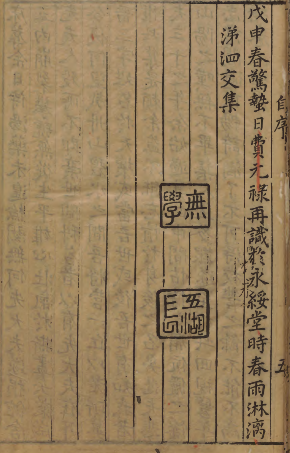 自序
五
戊申春驚蟄日費元祿再識於永綏堂時春雨淋漓
涕泗交集
無學
五湖長